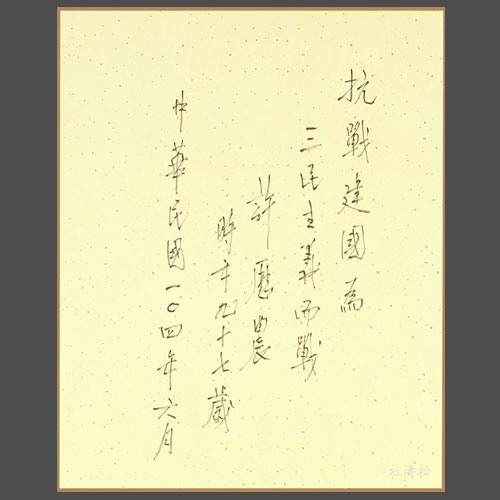 抗戰建國為
三民主義而戰
許歷農
時年九十七歲
中華民國一〇四年六月